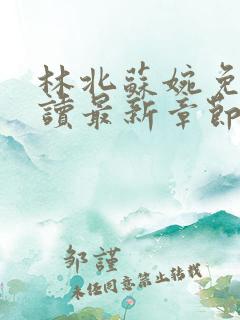 林北蘇婉免
讀最新章節
鄒謹
未經同意禁止轉載